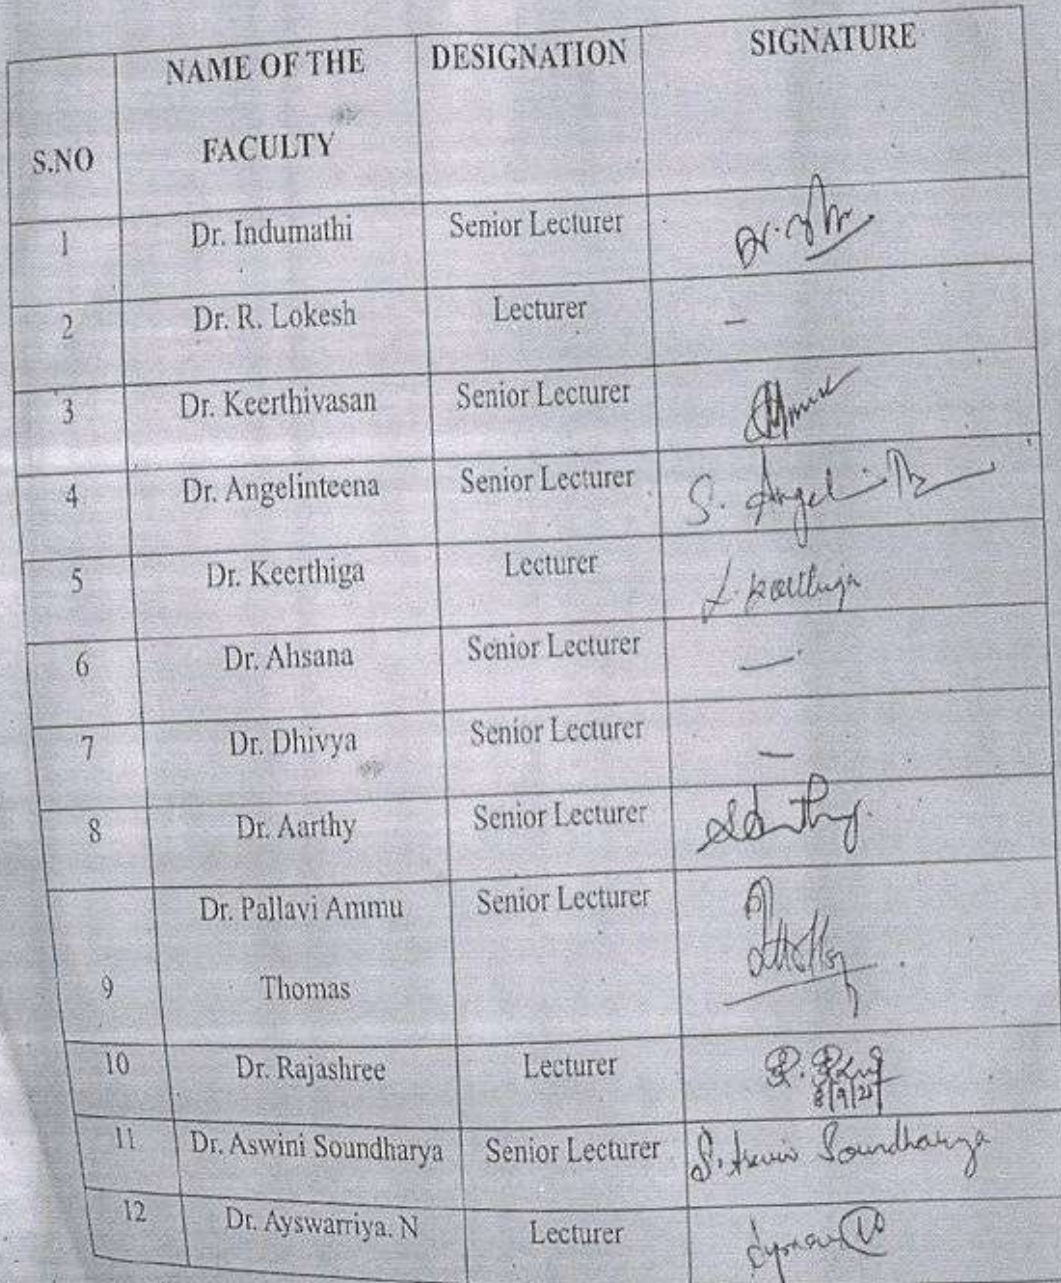 S.NO NAME OF THE FACULTY DESIGNATION SIGNATURE
1 Dr. Indumathi Senior Lecturer
2 Dr. R. Lokesh Lecturer –
3 Dr. Keerthivasan Senior Lecturer
4 Dr. Angelinteena Senior Lecturer S. Angelin
5 Dr. Keerthiga Lecturer L. Keerthiga
6 Dr. Ahsana Senior Lecturer –
7 Dr. Dhivya Senior Lecturer –
8 Dr. Aarthy Senior Lecturer
9 Dr. Pallavi Ammu Thomas Senior Lecturer
10 Dr. Rajashree Lecturer
11 Dr. Aswini Soundharya Senior Lecturer S. Aswin Soundharya
12 Dr. Ayswarriya. N Lecturer